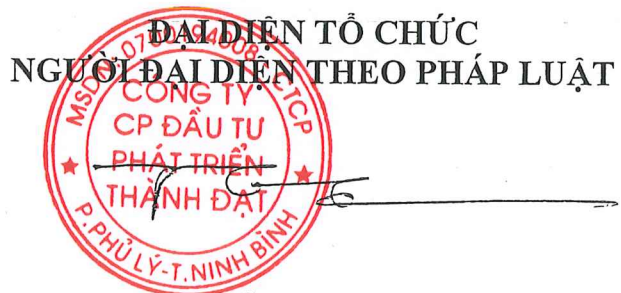 ĐẠI DIỆN TỔ CHỨC
NGƯỜI ĐẠI DIỆN THEO PHÁP LUẬT
CÔNG TY
CP ĐẦU TƯ
PHÁT TRIỂN
THÀNH ĐẠT
P.PHỦ LÝ-T.NINH BÌNH